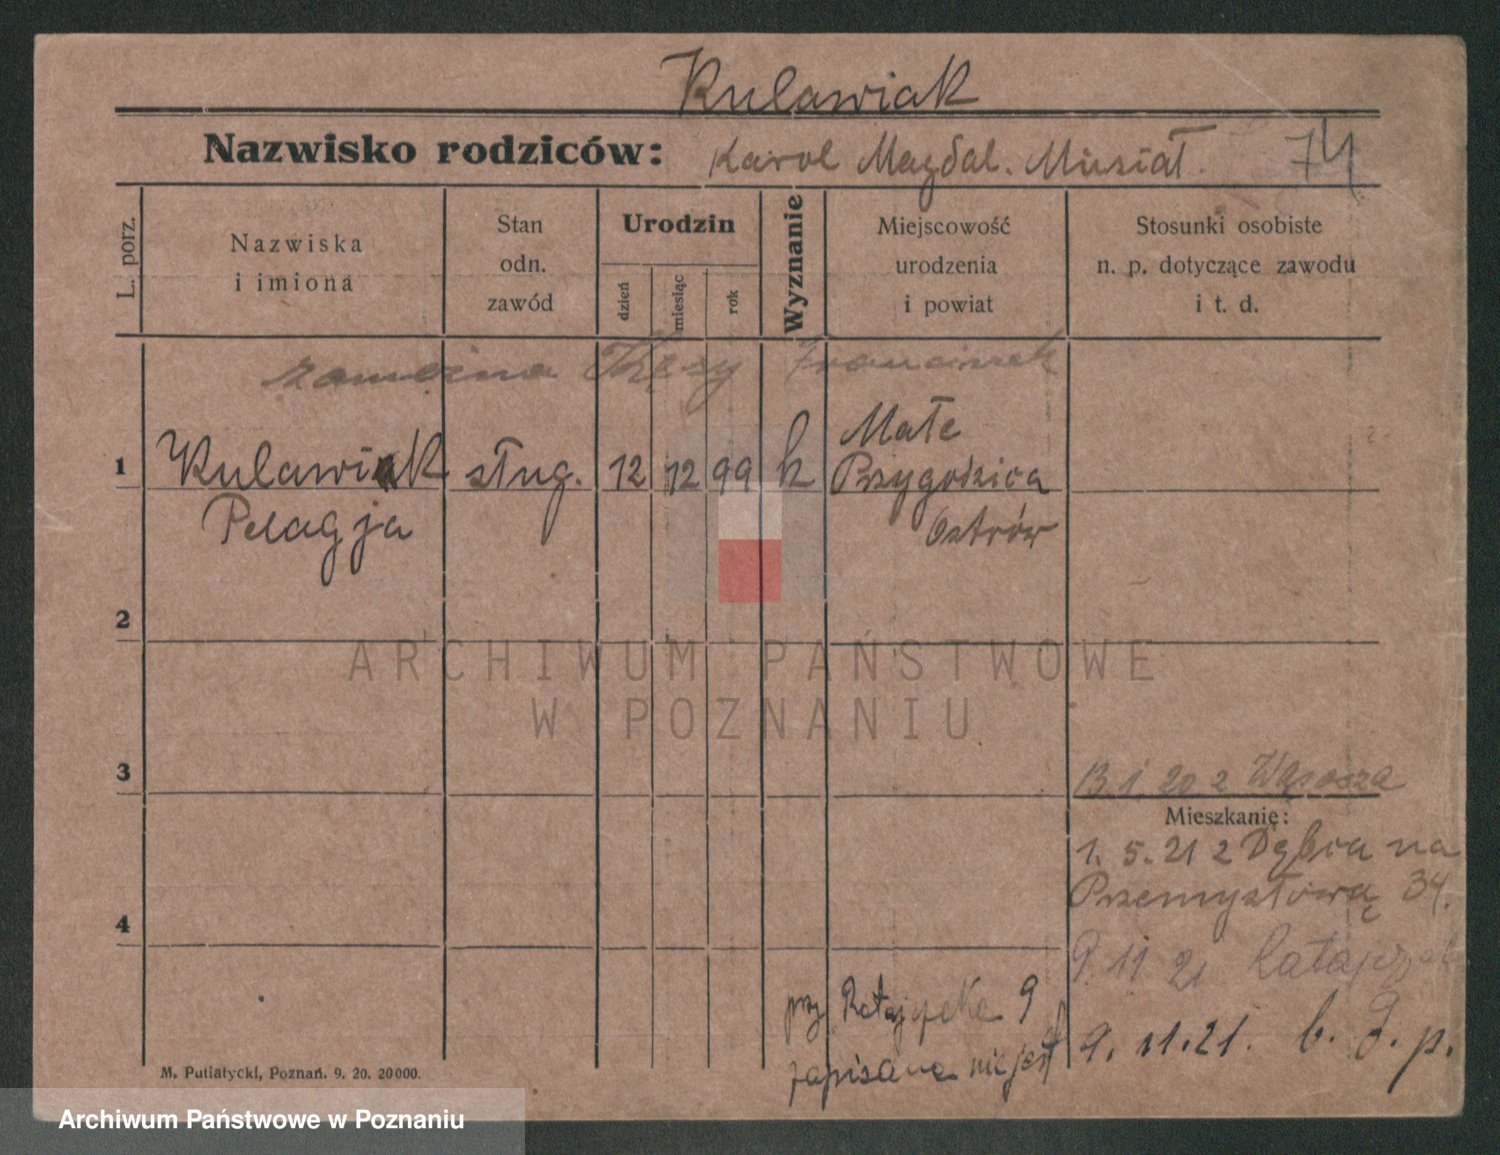 Kulawiak
Nazwisko rodziców: Karol Magdal. Musiał. 74
L. porz.
Nazwiska
i imiona
Stan
odn.
zawód
Urodzin
dzień
miesiąc
rok
Wyznanie
Miejscowość
urodzenia
i powiat
Stosunki osobiste
n. p. dotyczące zawodu
i t. d.
Franciszek
1 Kulawiak sług. 12 12 99 k Małe
Przygodzica
Pelagja Ostrów
2
ARCHIWUM PAŃSTWOWE
W POZNANIU
3
13 1 20 z Wąsosza
Mieszkanie:
1. 5. 21 z Dębca na
Przemysłową 34.
4
9. 11 21 Ratajczak
przy Ratajczaka 9
9. 11. 21. b. 3. p.
zapisana nie jest
M. Putiatycki, Poznań. 9. 20. 20000.
Archiwum Państwowe w Poznaniu